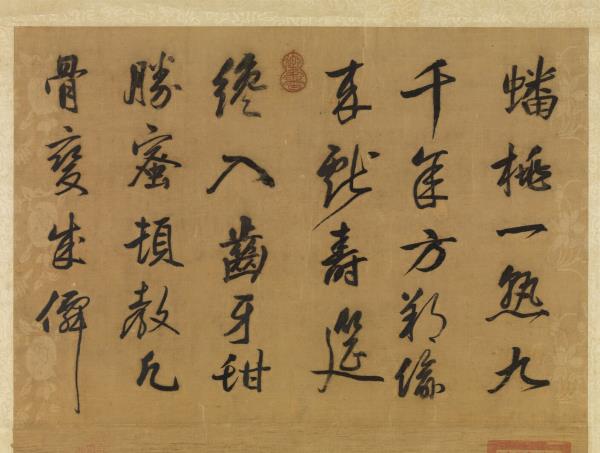 蟠桃一熟九
千年方朔偷
来獻壽筵
纔入齒牙甜
勝蜜頓教凡
骨變成僊